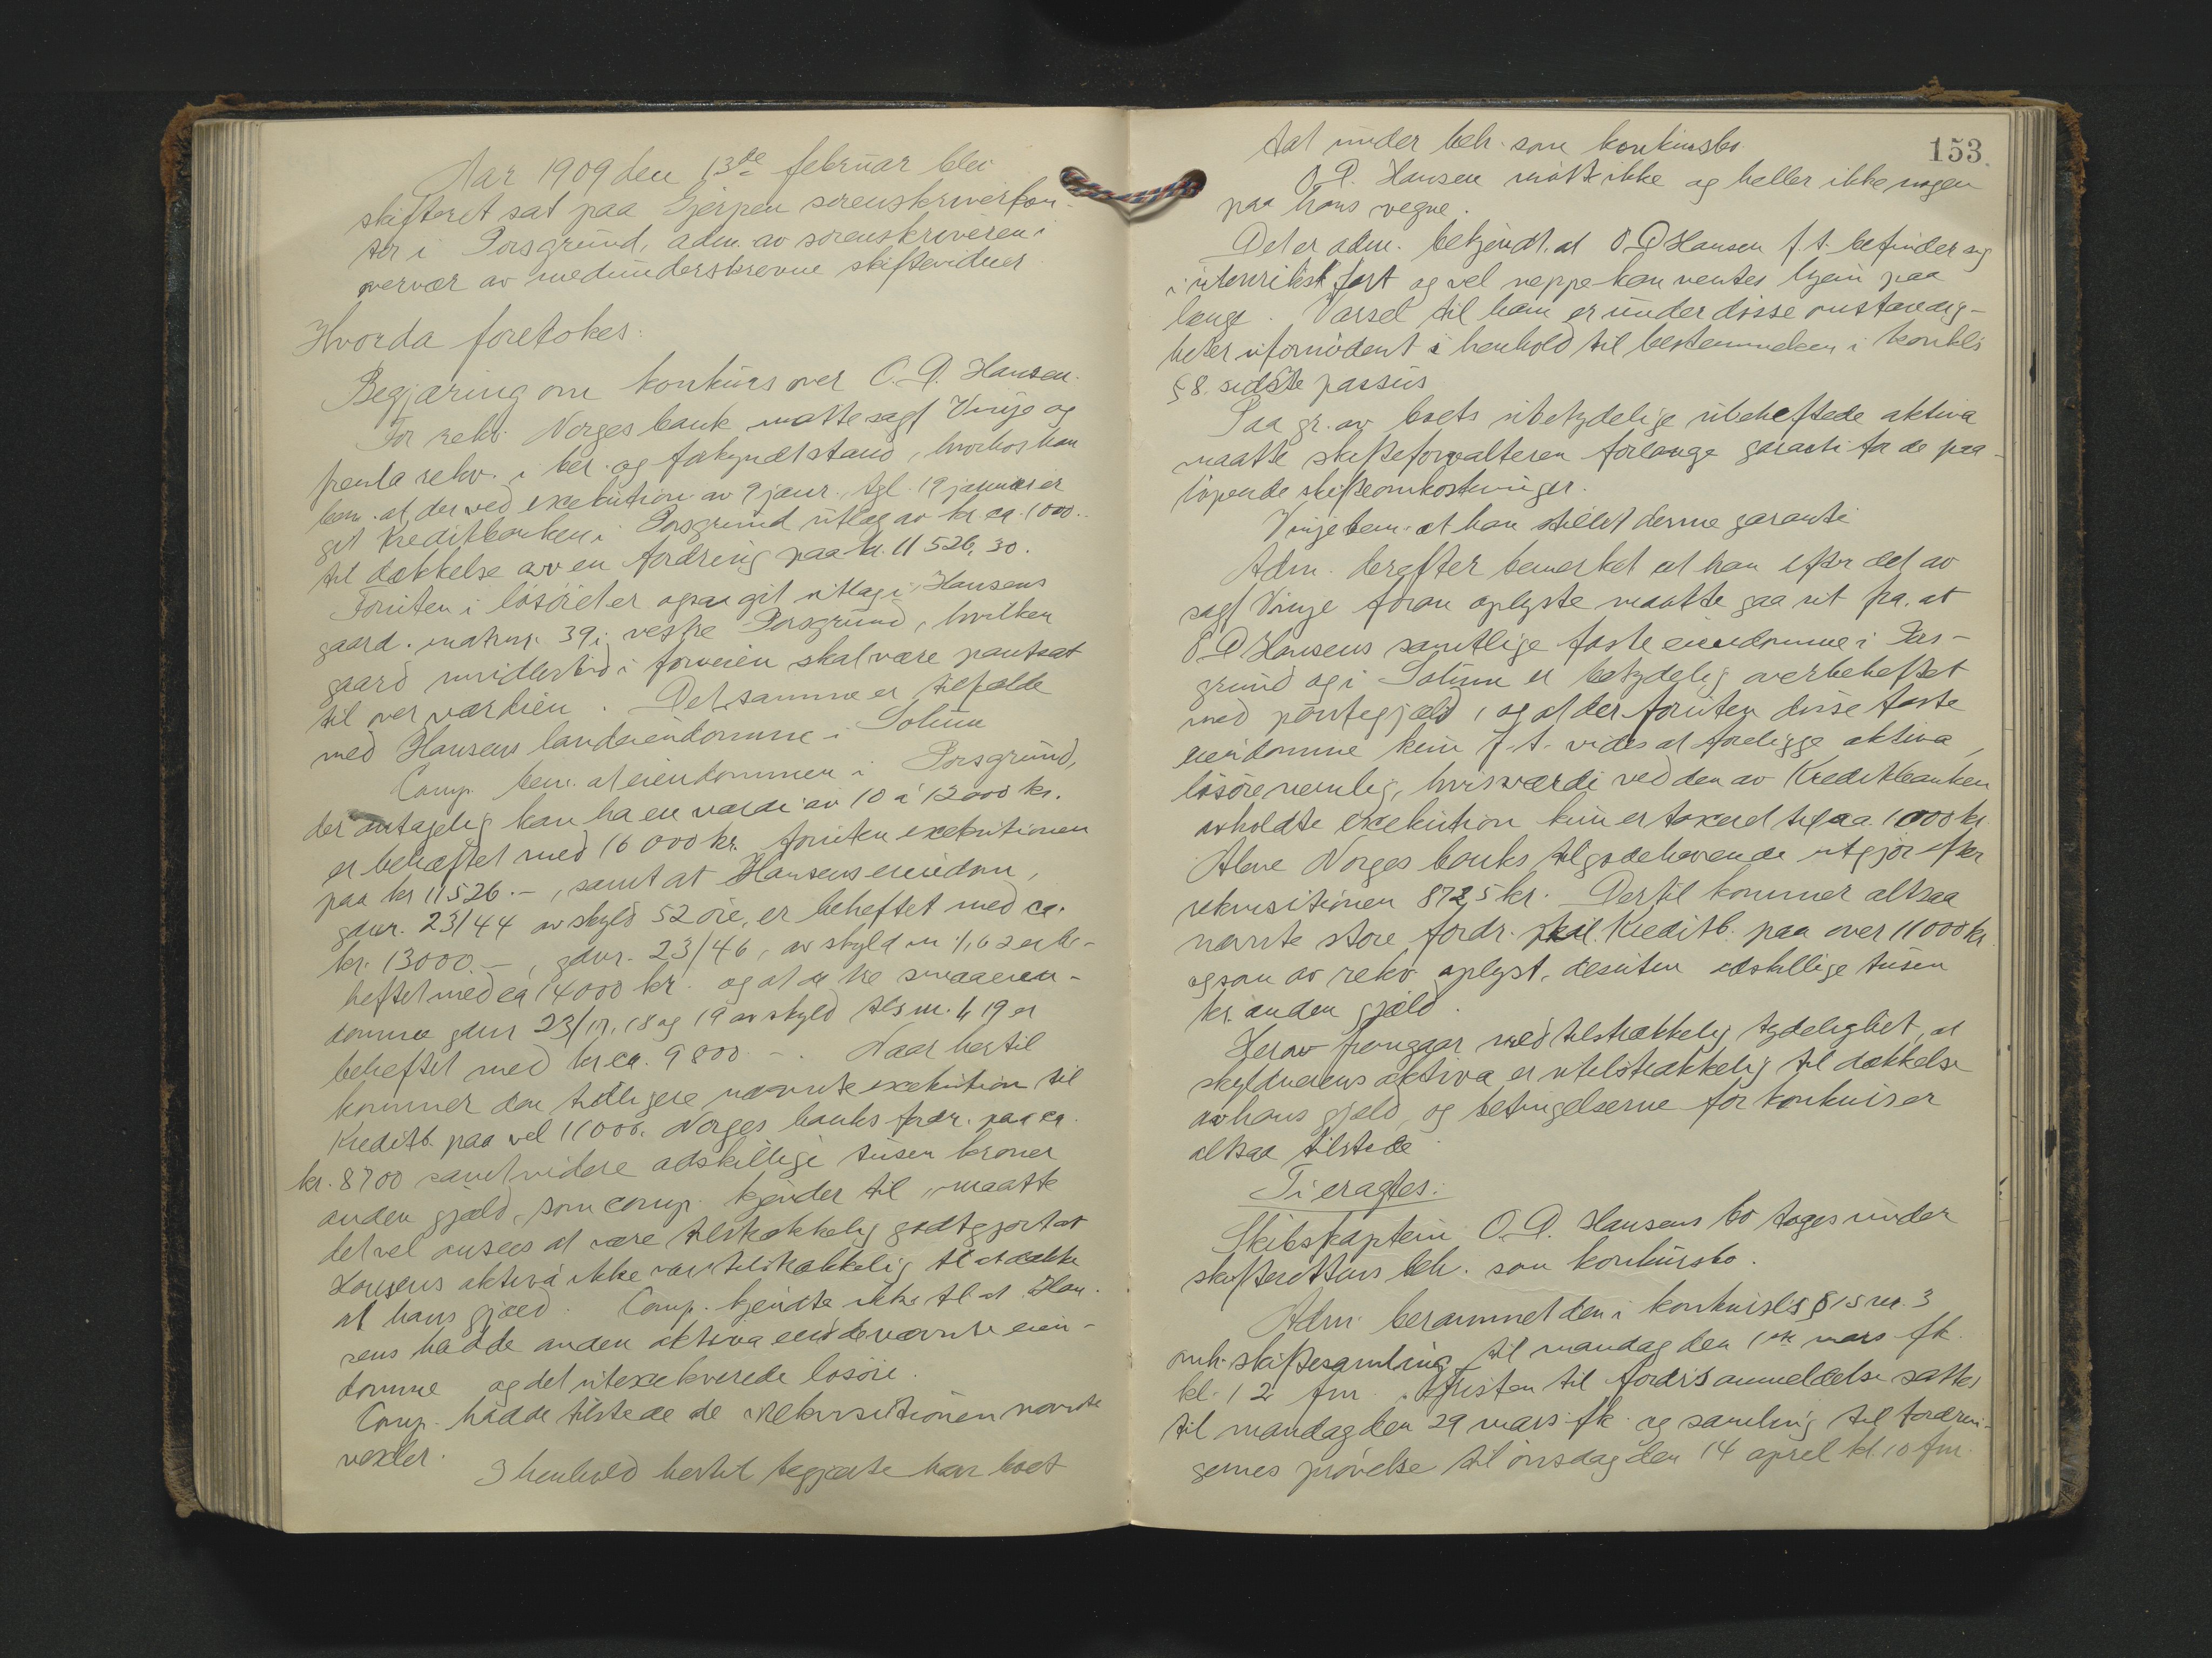 Aar 1909 den 13de februar blev
skifteret sat paa Gjerpen sorenskriverkon-
tor i Porsgrund, adm. av sorenskriveren i
overvær av medunderskrevne skiftevidner
Hvorda foretokes:
Begjæring om konkurs over O. D. Hansen.
For rekv. Norges bank møtte sagf Vinje og
freml. rekv. i ber. og forkyndt stand, hvorhos han
bem. at der ved exekution av 9 januar, tgl. 19 januar er
git Kreditbanken i Porsgrund utlæg av kr ca. 1000.-
til dækkelse av en fordring paa kr. 11526,30.
Foruten i løsøret er ogsaa git utlæg i Hansens
gaard. matrnr. 39 i vestre Porsgrund, hvilken
gaard imidlertid i forveien skal være pantsat
til over værdien. Det samme er tilfælde
med Hansens landeiendomme i Solum
Comp. bem. at eiendommen i Porsgrund,
der antagelig kan ha en værdi av 10 à 12000 kr.
er beheftet med 16000 kr. foruten exekutionen
paa kr 11526.-, samt at Hansens eiendom,
gbnr. 23/44 av skyld 52 øre, er beheftet med ca.
kr. 13000.-, gbnr. 23/46, av skyld m. 1,62 er be-
heftet med ca 14000 kr. og at de tre smaaeien-
domme gbnr 23/17, 18 og 19 av skyld tils m. 1,19 er
beheftet med kr ca. 9800.-. Naar hertil
kommer den tidligere nævnte exekution til
Kreditb. paa vel 11000, Norges banks fordr. paa ca.
kr. 8700 samt videre adskillige tusen kroner
anden gjæld, som comp. kjender til, maatte
det vel ansees at være tilstrækkelig godtgjort at
Hansens aktiva ikke var tilstrækkelig til at dække
al hans gjæld. Comp. kjendte ikke til at Han-
sens hadde anden aktiva end de nævnte eien-
domme og det utexekverede løsøre.
Comp. hadde tilstede de i rekvisitionen nævnte
vexler.
I henhold hertil begjærte han boet
153.
tat under beh. som konkursbo
O. D. Hansen møtte ikke og heller ikke nogen
paa hans vegne.
Det er adm. bekjendt. at O. D Hansen f. t. befinder sig
i utenriksk fart og vel neppe kan ventes hjem paa
længe. Varsel til ham er under disse omstændig-
heter ufornødent i henhold til bestemmelsen i konklv
§ 8. sidste passus
Paa gr. av boets ubetydelige ubeheftede aktiva
maatte skifteforvalteren forlange garanti for de paa-
løpende skifteomkostninger.
Vinje bem. at han stillet denne garanti
Adm. derefter bemerket at han efter det av
sagf Vinje foran oplyste maatte gaa ut fra. at
O. D Hansens samtlige faste eiendomme i Pors-
grund og i Solum er betydelig overbeheftet
med pantegjæld, og at der foruten disse faste
eiendomme kun f. t. vides at foreligge aktiva,
løsøre nemlig, hvis værdi ved den av Kreditbanken
avholdte exekution kun er taxerd til ca 1000 kr.
Alene Norges banks tilgodehavende utgjør efter
rekvisitionen 8725 kr. Dertil kommer altsaa
nævnte store fordr. til Kreditb. paa over 11000 kr.
og som av rekv. oplyst, desuten adskillige tusen
kr. anden gjæld.
Herav fremgaar med tilstrækkelig tydelighet, at
skyldnerens aktiva er utilstrækkelig til dækkelse
av hans gjæld, og betingelserne for konkurs er
altsaa tilstede
Ti eragtes:
Skibskaptein O. D. Hansens bo tages under
skifterettens beh. som konkursbo.
Adm. berammet den i konkursls § 15 nr. 3
omh. skiftesamling til mandag den 1ste mars fk.
kl. 12 fm. Fristen til fordrs anmeldelse sattes
til mandag den 29 mars fk. og samling til fordrin-
gernes prøvelse til onsdag den 14 april kl. 10 fm.